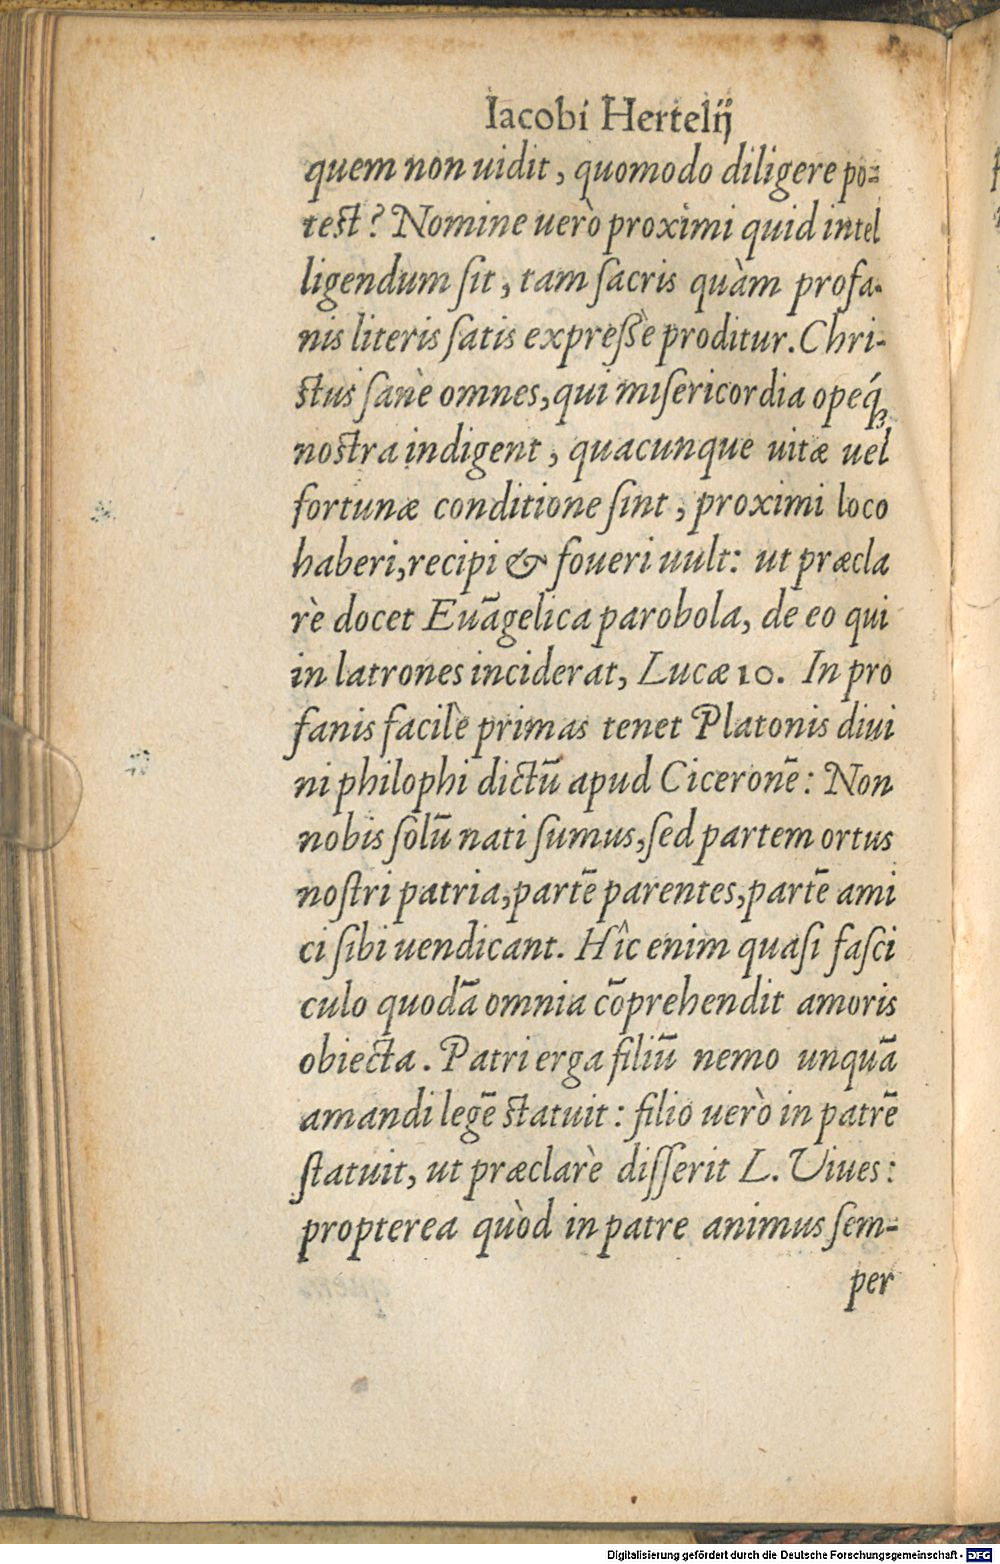 Iacobi Hertelij
quem non uidit, quomodo diligere po-
test? Nomine uerò proximi quid intel
ligendum ſit, tam ſacris quàm profa-
nis literis ſatis expreſsè proditur. Chri-
stus ſanè omnes, qui miſericordia opeq́;
nostra indigent, quacunque uitæ uel
fortunæ conditione ſint, proximi loco
haberi, recipi & foueri uult: ut præcla
rè docet Euāgelica parobola, de eo qui
in latrones inciderat, Lucæ 10. In pro
fanis facilè primas tenet Platonis diui
ni philophi dictū apud Ciceronē: Non
nobis ſolū nati ſumus, ſed partem ortus
noſtri patria, partē parentes, partē ami
ci ſibi uendicant. Hîc enim quaſi faſci
culo quodā omnia cōprehendit amoris
obiecta. Patri erga filiū nemo unquā
amandi legē statuit: filio uerò in patrē
ſtatuit, ut præclarè diſſerit L. Viues:
propterea quòd in patre animus ſem-
per
Digitalisierung gefördert durch die Deutsche Forschungsgemeinschaft - DFG